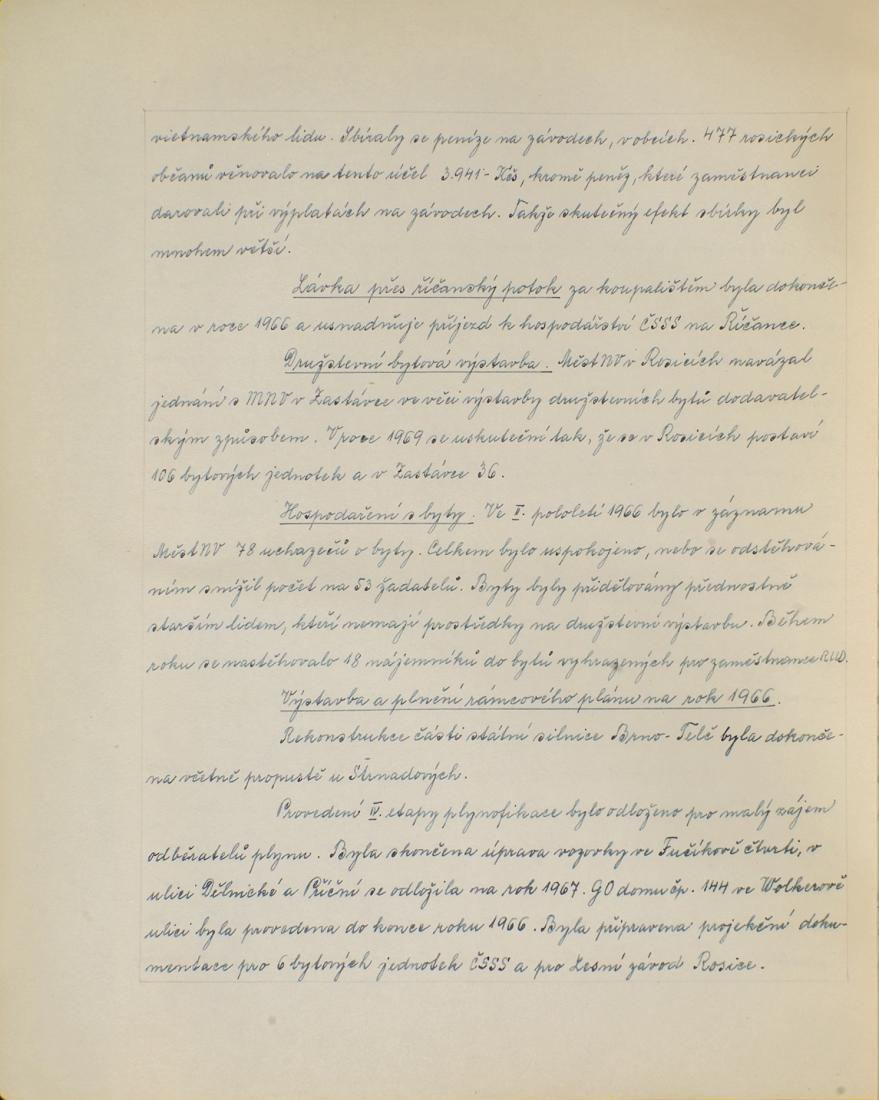 vietnamského lidu. Sbíraly se peníze na závodech, v obcích. 477 rosických
občanů věnovalo na tento účel 3.941- Kčs, kromě peněz, které zaměstnanci
darovali při výplatách na závodech. Takže skutečný efekt sbírky byl
mnohem větší.
Lávka přes říčanský potok za koupalištěm byla dokonče-
na v roce 1966 a usnadňuje příjezd k hospodářství ČSSS na Říčance.
Družstevní bytová výstavba. MěstNV v Rosicích navázal
jednání s MNV v Zastávce ve věci výstavby družstevních bytů dodavatel-
ským způsobem. V roce 1969 se uskuteční tak, že se v Rosicích postaví
106 bytových jednotek a v Zastávce 36.
Hospodaření s byty. Ve II. pololetí 1966 bylo v záznamu
MěstNV 78 uchazečů o byty. Celkem bylo uspokojeno, nebo se odstěhová-
ním snížil počet na 53 žadatelů. Byty byly přidělovány přednostně
starším lidem, kteří nemají prostředky na družstevní výstavbu. Během
roku se nastěhovalo 18 nájemníků do bytů vyhrazených pro zaměstnance RUD.
Výstavba a plnění rámcového plánu na rok 1966.
Rekonstrukce části státní silnice Brno-Telč byla dokonče-
na včetně propustě u Strnadových.
Provedení IV. etapy plynofikace bylo odloženo pro malý zájem
odběratelů plynu. Byla skončena úprava vozovky ve Fučíkově čtvrti, v
ulici Dělnické a Příční se odložila na rok 1967. GO domu čp. 144 ve Wolkerově
ulici byla provedena do konce roku 1966. Byla připravena projekční doku-
mentace pro 6 bytových jednotek ČSSS a pro Lesní závod Rosice.